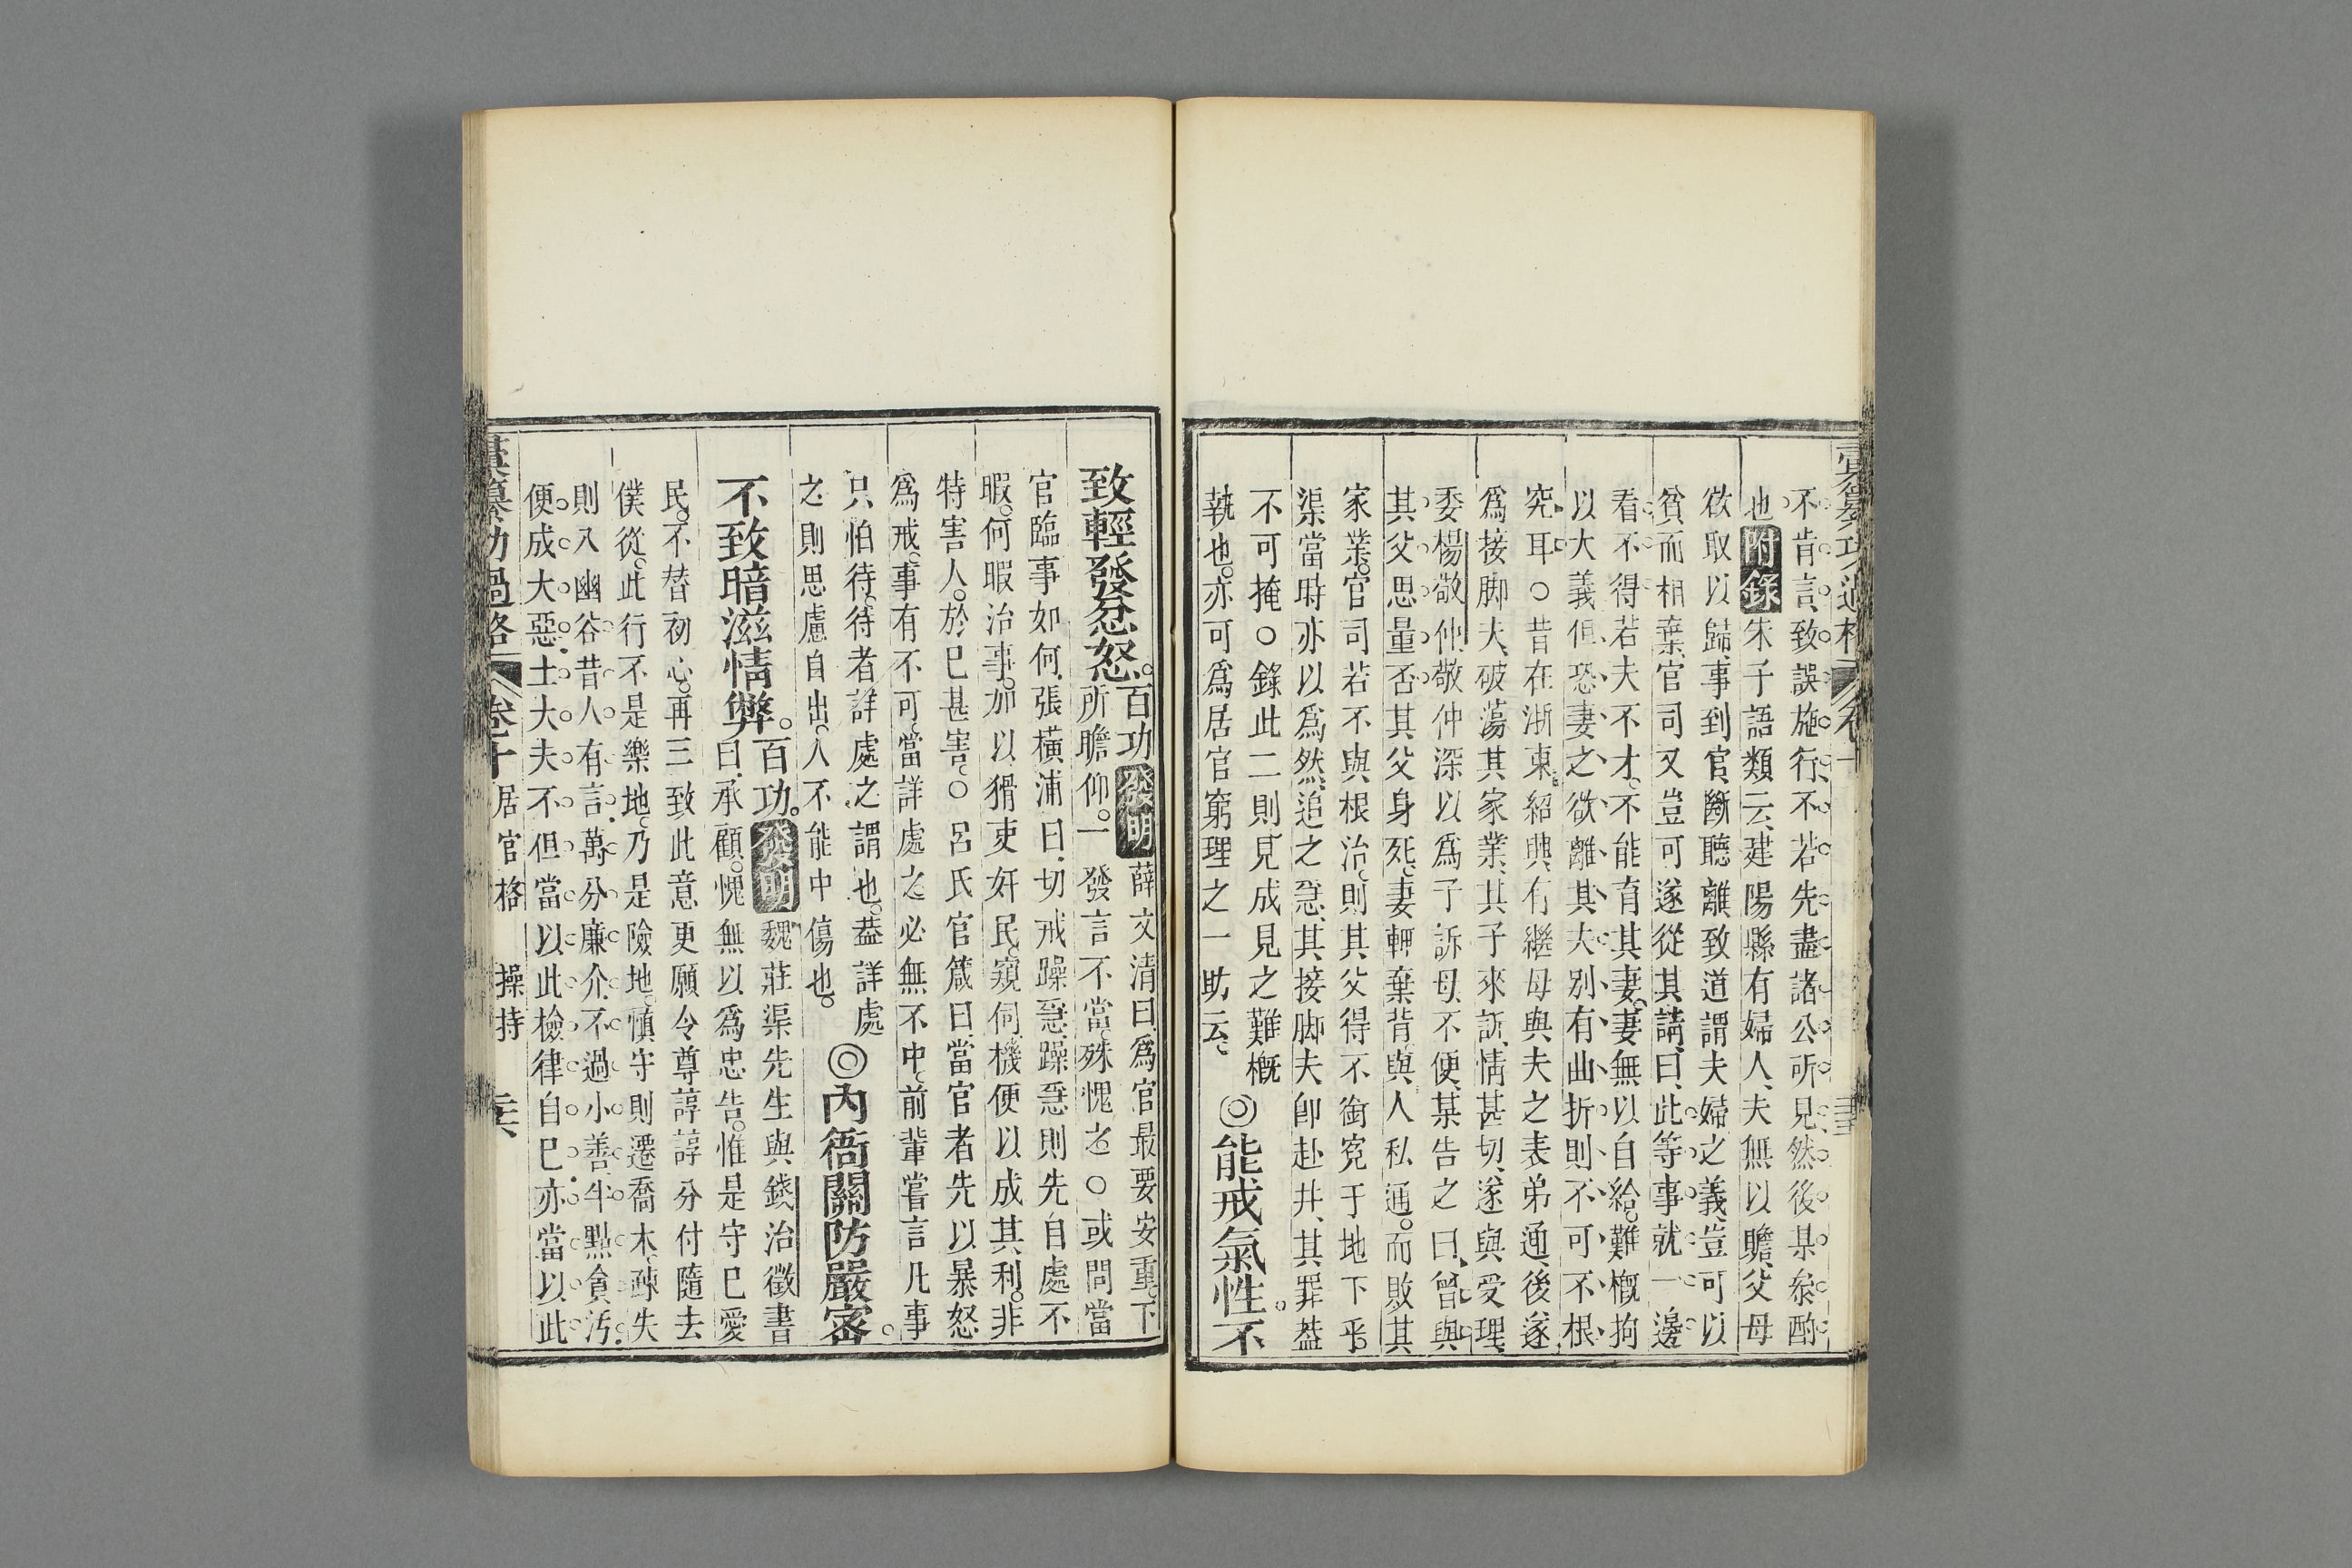 不肯言致誤施行不若先盡諸公所見然後果叅酌
也附錄朱子語類云建陽縣有婦人夫無以贍父母
欲取以歸事到官斷聽離致道謂夫婦之義豈可以
貧而相棄官司又豈可遂從其請曰此等事就一邊
看不得若夫不才不能育其妻妻無以自給難槪拘
以大義但恐妻之欲離其夫別有曲折則不可不根
究耳○昔在浙東紹興有繼母與夫之表弟通後遂
爲接脚夫破蕩其家業其子來訴情甚切遂與受理
委楊敬仲敬仲深以爲子訴母不便某告之曰曾與
其父思量否其父身死妻輒棄背與人私通而敗其
家業官司若不與根治則其父得不銜冤于地下乎
渠當時亦以爲然追之急其接脚夫卽赴井其罪葢
不可掩○錄此二則見成見之難槪
執也亦可爲居官窮理之一助云
◎能戒氣性。不
致輕發忿怒。百功發明薛文清曰爲官最要安重下
所瞻仰一發言不當殊愧之○或問當
官臨事如何張橫浦曰切戒躁急躁急則先自處不
暇何暇治事加以猾吏奸民窺伺機便以成其利非
特害人於己甚害○呂氏官箴曰當官者先以暴怒
爲戒事有不可當詳處之必無不中前輩嘗言凡事
只怕待待者詳處之謂也葢詳處
之則思慮自出人不能中傷也
◎內衙關防嚴密。
不致暗滋情弊。百功發明魏莊渠先生與錢治徵書
曰承顧愧無以爲忠告惟是守己愛
民不替初心再三致此意更願令尊諄諄分付隨去
僕從此行不是樂地乃是險地愼守則遷喬木疎失
則入幽谷昔人有言萬分廉介不過小善半點貪汚
便成大惡士大夫不但當以此檢律自己亦當以此
彙纂功過格 卷十 居官格 操持 三六